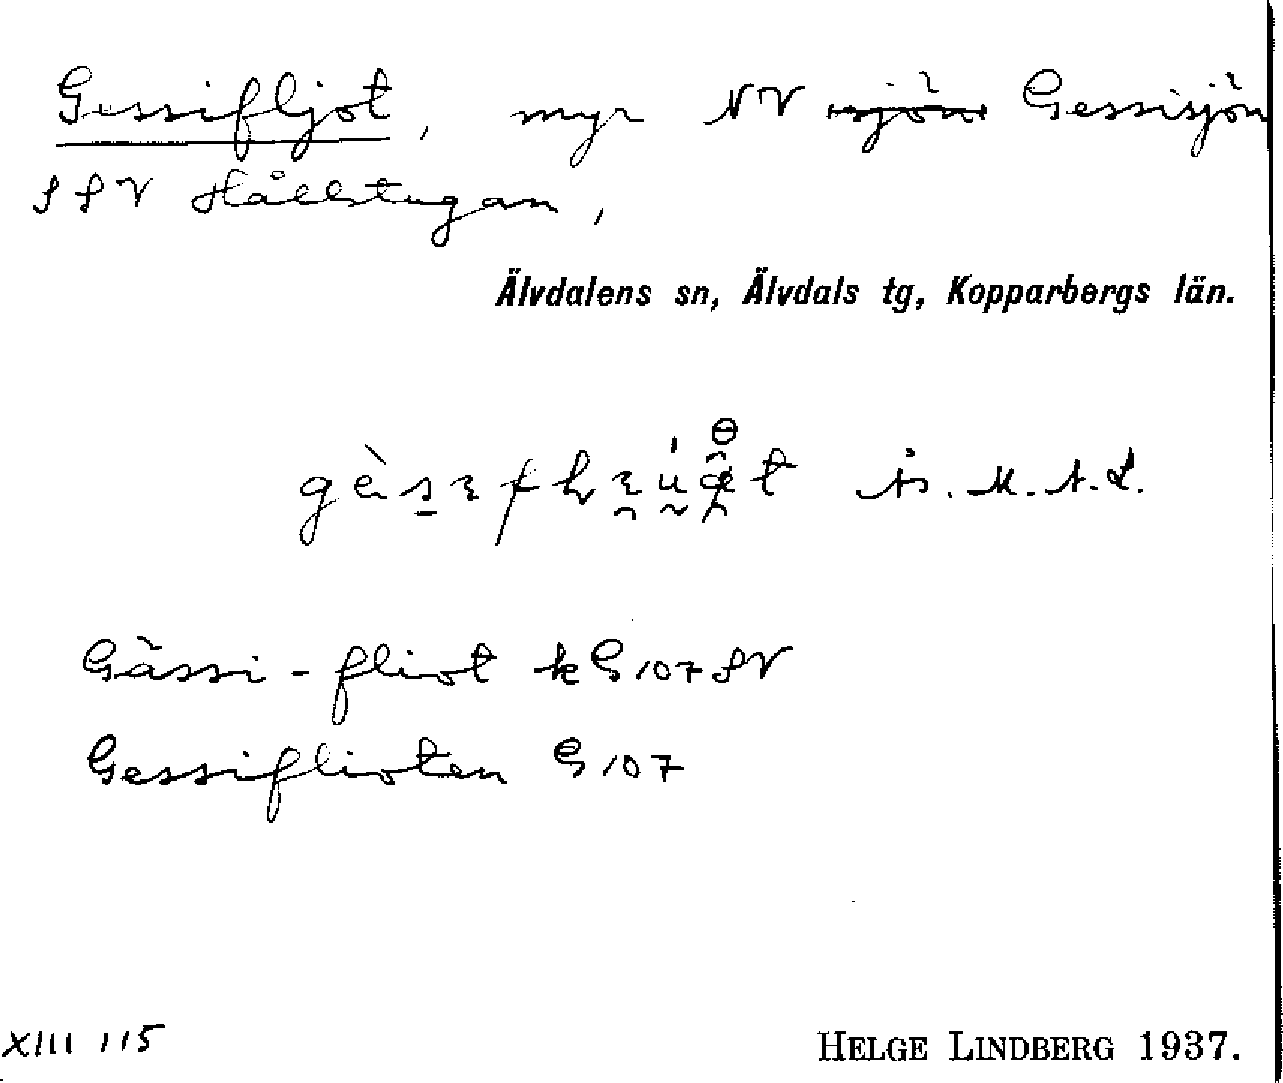 Gessifljot, myr NV sjön Gessisjön
SSV Hållstugan,
Älvdalens sn, Älvdals tg, Kopparbergs län.
Gässi-fliot k G 107 SV
Gessiflioten G 107
XIII 115
HELGE LINDBERG 1937.